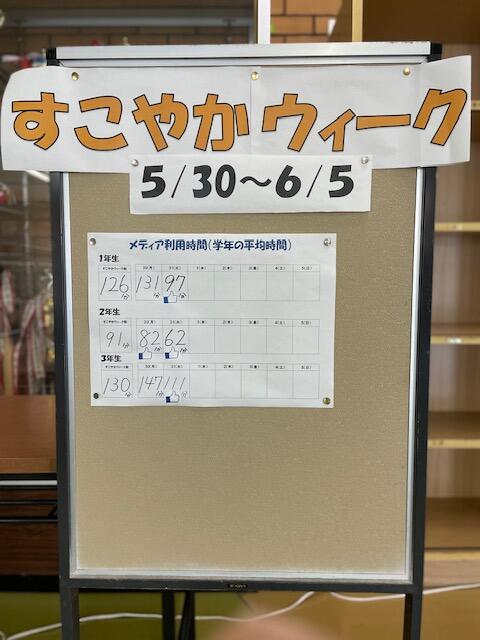 すこやかウィーク
5/30～6/5
メディア利用時間(学年の平均時間)
1年生
すこやかウィーク前 30(月) 31(火) 1(水) 2(木) 3(金) 4(土) 5(日)
126分 131分 97分
2年生
すこやかウィーク前 30(月) 31(火) 1(水) 2(木) 3(金) 4(土) 5(日)
91分 82分 62分
3年生
すこやかウィーク前 30(月) 31(火) 1(水) 2(木) 3(金) 4(土) 5(日)
130分 147分 111分